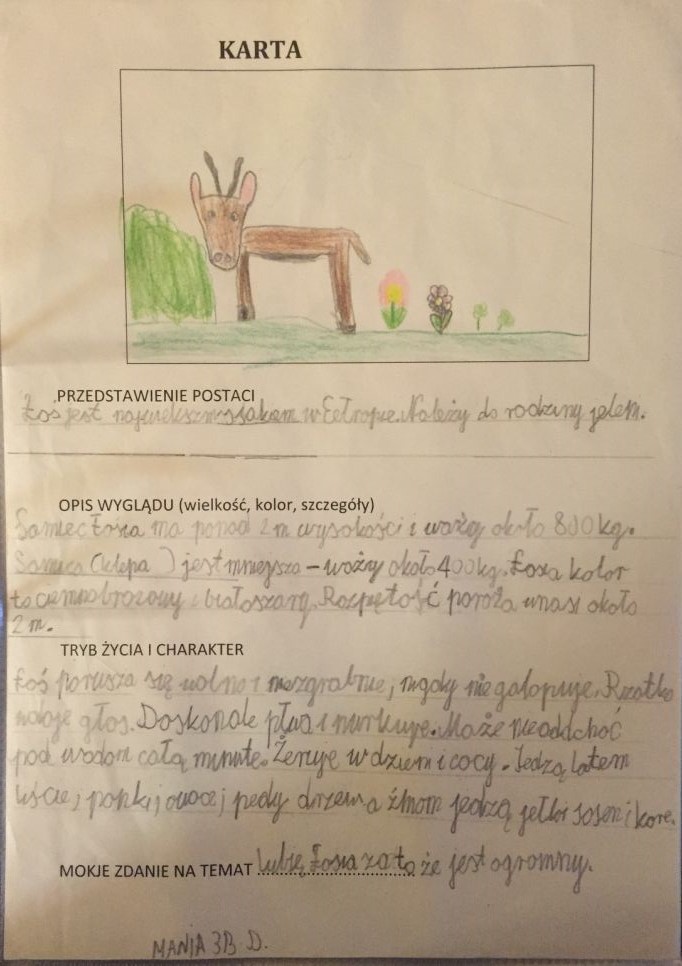 KARTA
PRZEDSTAWIENIE POSTACI
Łoś jest najwiekszm ssakem w Eełropie. Należy do rodziny jelem.
OPIS WYGLĄDU (wielkość, kolor, szczegóły)
Samiec Łosia ma ponad 2 m wysokości i waży około 800 kg.
Samica (klępa ) jest mniejsza – ważny około 400 kg. Łosa kolor
to ciemnobrozowy i białoszary. Rozpętość poroża wnosi około
2 m.
TRYB ŻYCIA I CHARAKTER
Łoś porusza się wolno i niezgrabnie, nigdy nie galopuje. Rzatko
wdaje głos. Doskonale pływa i nurkuje. Może nieoddchoć
pod wodom całą minute. Żeruje w dziem i cocy. Jedzą latem
liście, pąpki, owoce, pędy drzew a źimom jedzą jełki sosen i kore.
MOKJE ZDANIE NA TEMAT lubię Łosia za to że jest ogromny.
MANIA 3B D.